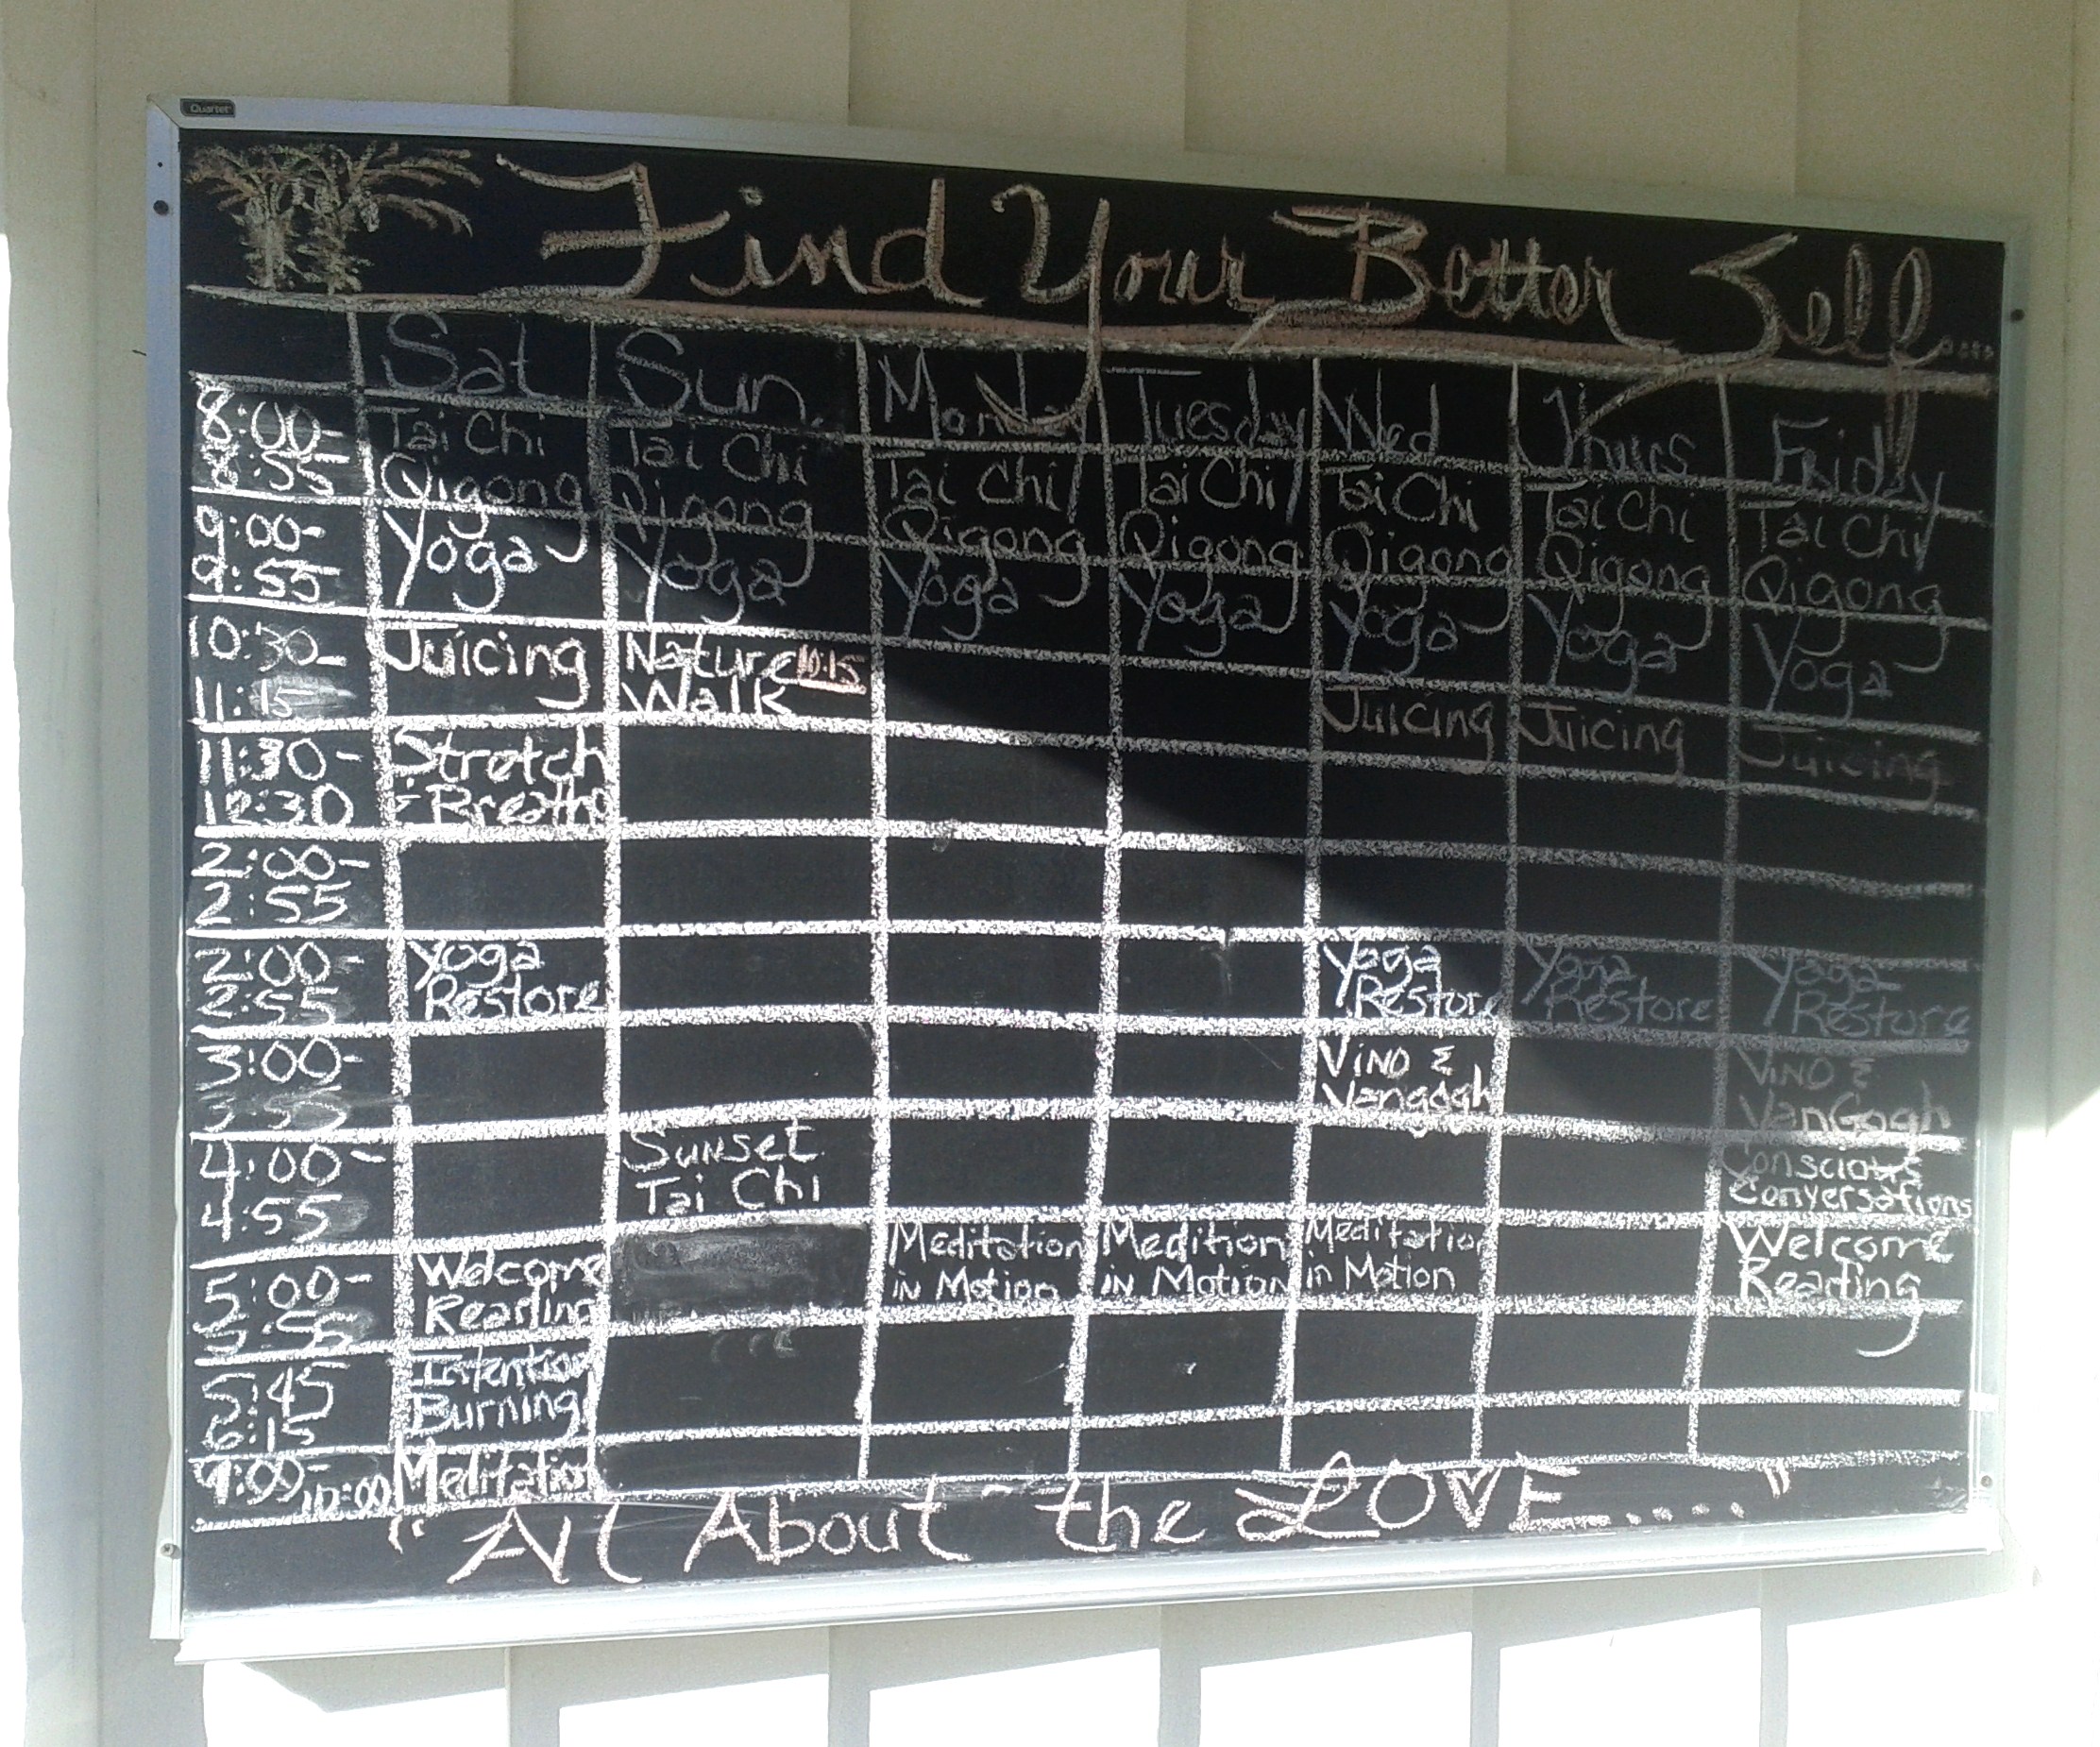 Quartet
Find Your Better Self....
Sat Sun. Monday Tuesday Wed Thurs Friday
8:00- Tai Chi Tai Chi Tai Chi/ Tai Chi/ Tai Chi Tai Chi Tai Chi/
8:55 Qigong Qigong Qigong Qigong Qigong Qigong Qigong
9:00- Yoga Yoga Yoga Yoga Yoga Yoga Yoga
9:55
10:30- Juicing Nature 10:15 Juicing Juicing Juicing
11:15 Walk
11:30- Stretch
12:30 & Breathe
2:00-
2:55
2:00- Yoga Yoga Yoga Yoga
2:55 Restore Restore Restore Restore
3:00- Vino & Vino &
3:55 Vangogh VanGogh
4:00- Sunset Conscious
4:55 Tai Chi Conversations
5:00- Welcome Meditation Medition Meditation Welcome
5:55 Reading in Motion in Motion in Motion Reading
5:45 Intention
6:15 Burning
9:00- 10:00 Meditation
"All About the LOVE....."